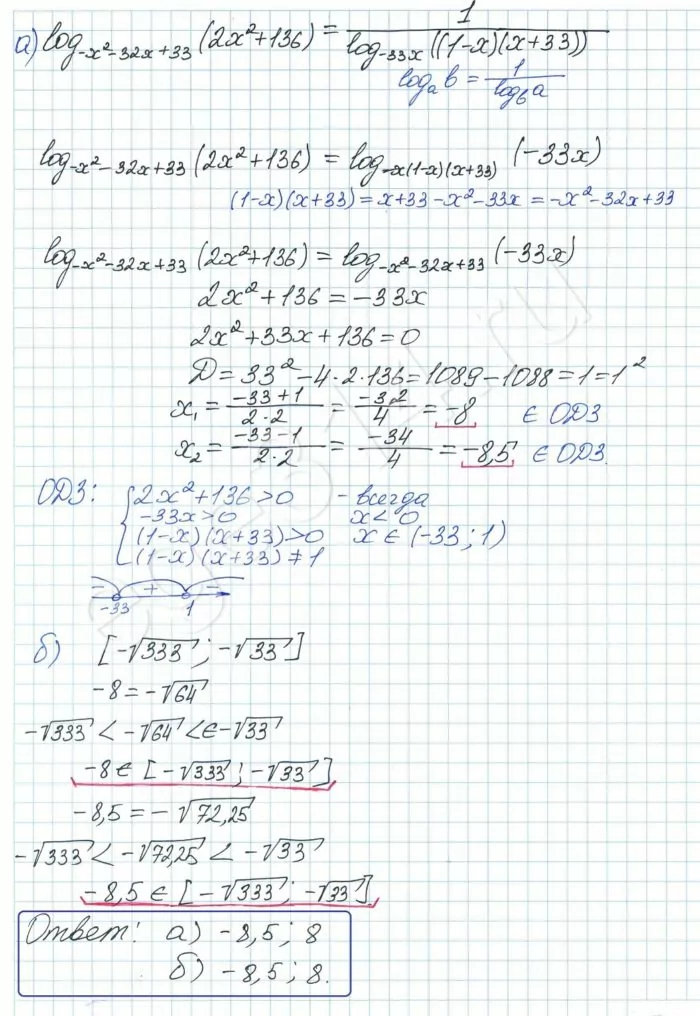 а) log₋ₓ²₋₃₂ₓ₊₃₃ (2x²+136) = 1 / log₋₃₃ₓ ((1-x)(x+33))
logₐ b = 1 / log_b a
log₋ₓ²₋₃₂ₓ₊₃₃ (2x²+136) = log₋ₓ₍₁₋ₓ₎₍ₓ₊₃₃₎ (-33x)
(1-x)(x+33) = x+33-x²-33x = -x²-32x+33
log₋ₓ²₋₃₂ₓ₊₃₃ (2x²+136) = log₋ₓ²₋₃₂ₓ₊₃₃ (-33x)
2x²+136 = -33x
2x²+33x+136=0
D = 33²-4·2·136=1089-1088=1=1²
x₁ = (-33+1)/(2·2) = -32/4 = -8 ∈ ОДЗ
x₂ = (-33-1)/(2·2) = -34/4 = -8,5 ∈ ОДЗ.
ОДЗ: { 2x²+136>0 - всегда
-33x>0 x<0
(1-x)(x+33)>0 x∈(-33;1)
(1-x)(x+33)≠1
- + -
-33 1
б) [-√333; -√33]
-8=-√64
-√333 < -√64 <∈-√33
-8∈[-√333; -√33]
-8,5=-√72,25
-√333 < -√72,25 < -√33
-8,5∈[-√333; -√33]
Ответ: а) -8,5; 8
б) -8,5; 8.